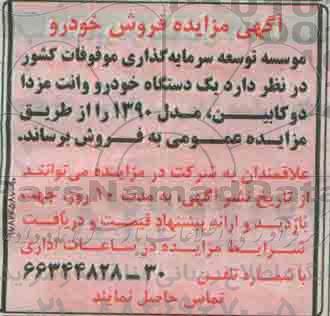 آگهی مزایده فروش خودرو
موسسه توسعه سرمایه‌گذاری موقوفات کشور
در نظر دارد یک دستگاه خودرو وانت مزدا
دوکابین، مدل ۱۳۹۰ را از طریق
مزایده عمومی به فروش برساند.
علاقمندان به شرکت در مزایده می‌توانند
از تاریخ نشر آگهی، به مدت ۱۰ روز، جهت
بازدید و ارائه پیشنهاد قیمت و دریافت
شرایط مزایده در ساعات اداری
با شماره تلفن ۳۰-۶۶۳۴۴۸۲۸
تماس حاصل نمایند